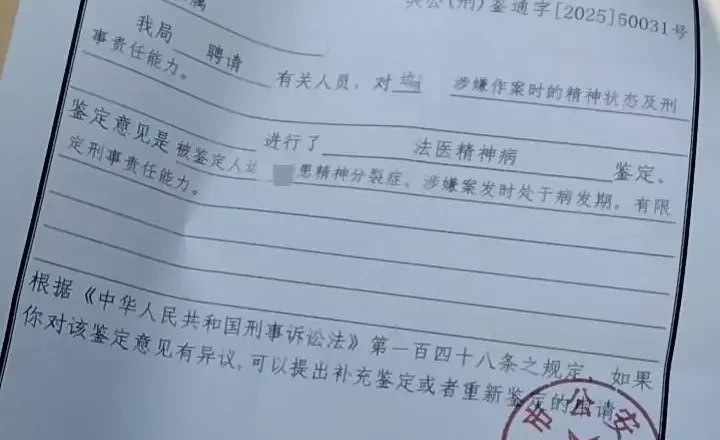 属
公(刑)鉴通字[2025]50031号
我局 聘请 有关人员，对 涉嫌作案时的精神状态及刑
事责任能力。
进行了 法医精神病 鉴定。
鉴定意见是 被鉴定人 患精神分裂症，涉嫌案发时处于病发期。有限
定刑事责任能力。
根据《中华人民共和国刑事诉讼法》第一百四十八条之规定，如果
你对该鉴定意见有异议，可以提出补充鉴定或者重新鉴定的申请
市公安